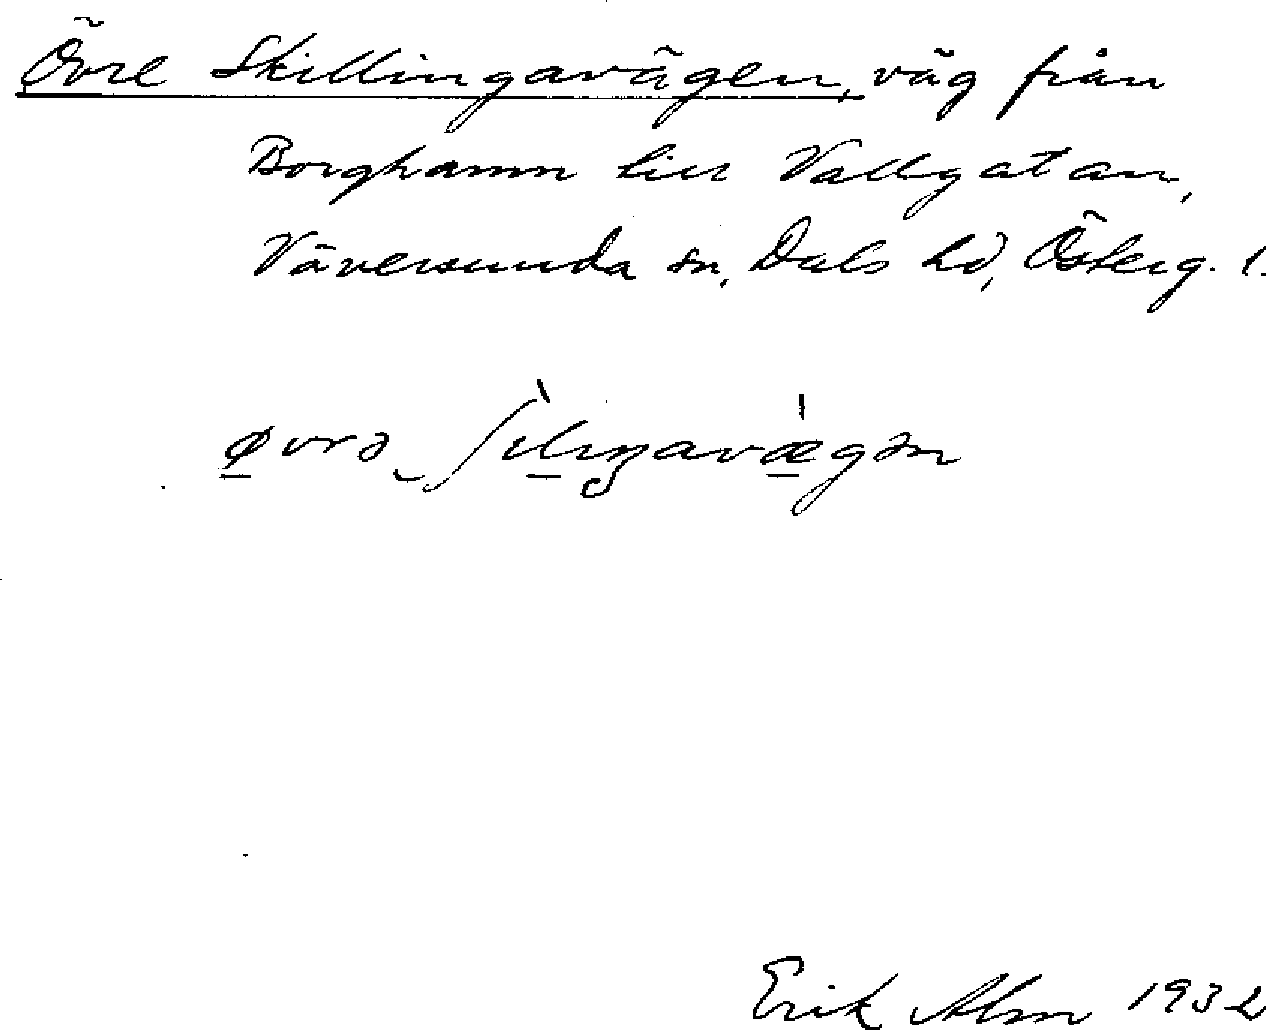 Övre Skillingavägen, väg från
Borghamn till Vallgatan,
Väversunda sn, Dals hd, Österg. l.
øvrə ʃìlıŋavæ̀gən
Erik Alm 1932